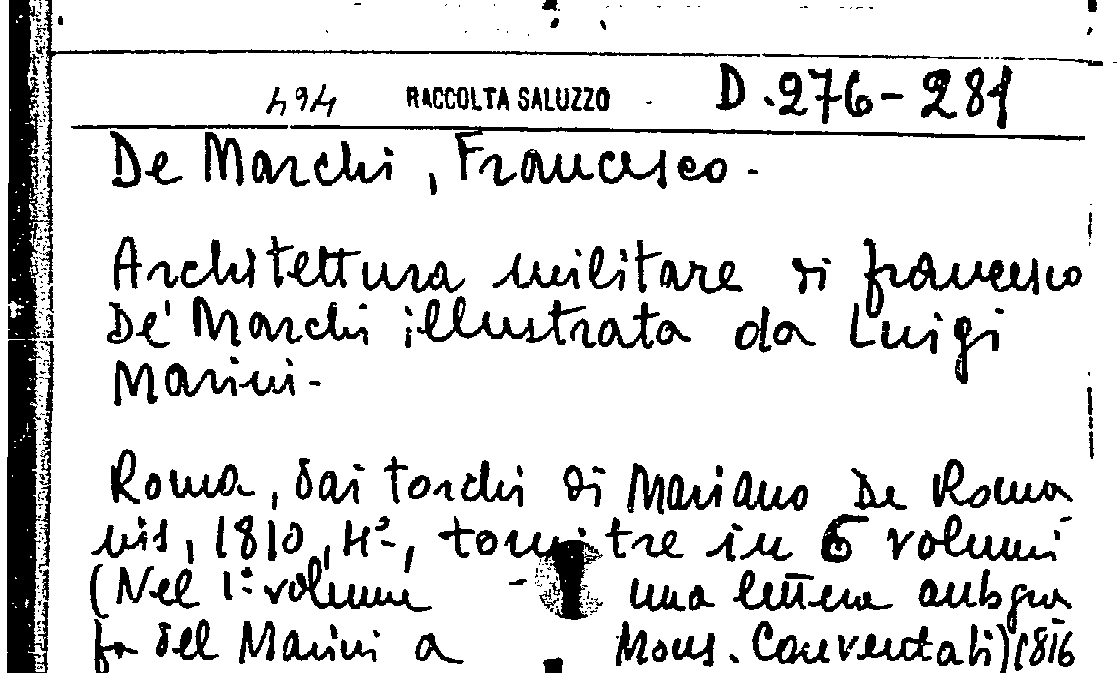 494 RACCOLTA SALUZZO D.276-281
De Marchi, Francesco.
Architettura militare di Francesco
De' Marchi illustrata da Luigi
Marini-
Roma, dai torchi di Mariano De Roma
nis, 1810, 4º, tomi tre in 6 volumi
(Nel 1º volume - una lettera autogra
fa del Marini a Mons. Conventati) (1816